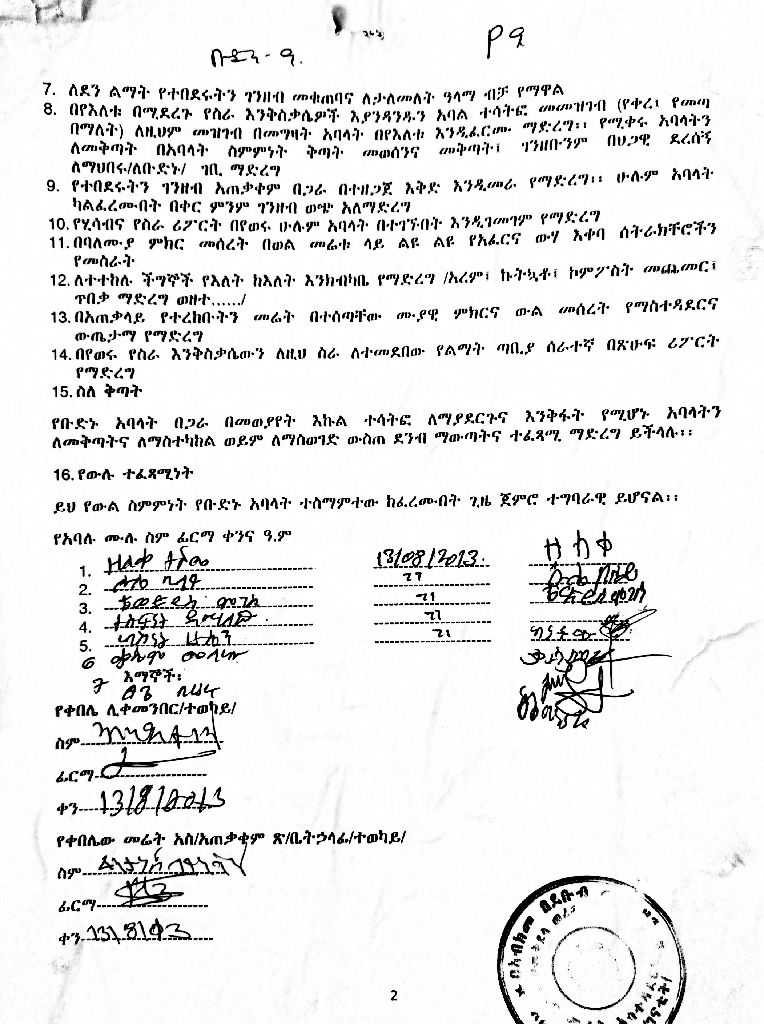 ቡድን - 9.
P 9
7. ለደን ልማት የተበደሩትን ገንዘብ መቁጠባና ለታለመለት ዓላማ ብቻ የማዋል
8. በየእለቱ በሚደረጉ የስራ እንቅስቃሴዎች እያንዳንዱን አባል ተሳትፎ መመዝገብ (የቀረ፣ የመጣ
በማለት) ለዚህም መዝገብ በመግዛት አባላት በየእለቱ እንዲፈርሙ ማድረግ፡፡ የሚቀሩ አባላትን
ለመቅጣት በአባላት ስምምነት ቅጣት መወሰንና መቅጣት፣ ገንዘቡንም በህጋዊ ደረሰኝ
ለማህበሩ/ለቡድኑ/ ገቢ ማድረግ
9. የተበደሩትን ገንዘብ አጠቃቀም በጋራ በተዘጋጀ እቅድ እንዲመራ የማድረግ፡፡ ሁሉም አባላት
ካልፈረሙበት በቀር ምንም ገንዘብ ወጭ አለማድረግ
10. የሂሳብና የስራ ሪፖርት በየወሩ ሁሉም አባላት በተገኙበት እንዲገመገም የማድረግ
11. በባለሙያ ምክር መሰረት በወል መሬቱ ላይ ልዩ ልዩ የአፈርና ውሃ እቀባ ስትራክቸሮችን
የመስራት
12. ለተተከሉ ችግኞች የእለት ከእለት እንክብካቤ የማድረግ /አረም፣ ኩትኳቶ፣ ኮምፖስት መጨመር፣
ጥበቃ ማድረግ ወዘተ....../
13. በአጠቃላይ የተረከቡትን መሬት በተሰጣቸው ሙያዊ ምክርና ውል መሰረት የማስተዳደርና
ውጤታማ የማድረግ
14. በየወሩ የስራ እንቅስቃሴውን ለዚህ ስራ ለተመደበው የልማት ጣቢያ ሰራተኛ በጽሁፍ ሪፖርት
የማድረግ
15. ስለ ቅጣት
የቡድኑ አባላት በጋራ በመወያየት እኩል ተሳትፎ ለማያደርጉና እንቅፋት የሚሆኑ አባላትን
ለመቅጣትና ለማስተካከል ወይም ለማስወገድ ውስጠ ደንብ ማውጣትና ተፈጻሚ ማድረግ ይችላሉ፡፡
16. የውሉ ተፈጻሚነት
ይህ የውል ስምምነት የቡድኑ አባላት ተስማምተው ከፈረሙበት ጊዜ ጀምሮ ተግባራዊ ይሆናል፡፡
የአባሉ ሙሉ ስም ፊርማ ቀንና ዓ.ም
1. ዘለቀ 13/08/2013. ዘለቀ
2. "
3. "
4. "
5. "
6
7 እማኞች፡
የቀበሌ ሊቀመንበር/ተወካይ/
ስም
ፊርማ
ቀን 13/8/2013
የቀበሌው መሬት አስ/አጠቃቀም ጽ/ቤት ኃላፊ/ተወካይ/
ስም
ፊርማ
ቀን 13/8/03
2